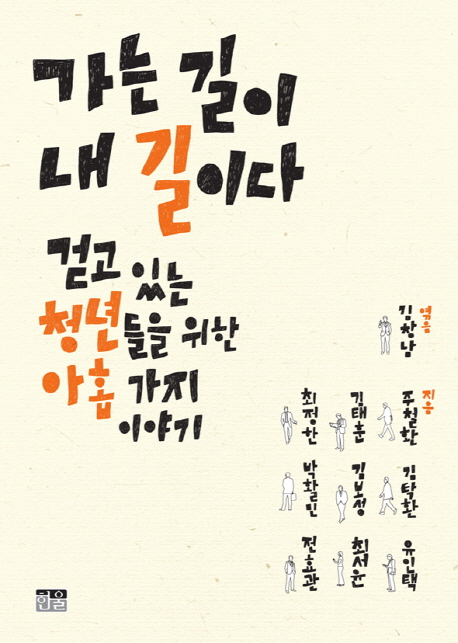 가는 길이
내 길이다
걷고 있는
청년들을 위한
아홉 가지
이야기
엮음
김창남
지음
주철환
김태훈
최정한
김탁환
김보성
박활민
유인택
최서윤
전효관
한울